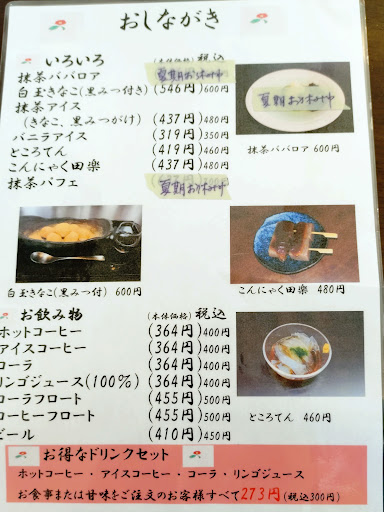 おしながき
いろいろ (本体価格)税込
抹茶ババロア 夏期お休み中
白玉きなこ(黒みつ付き) (546円)600円
抹茶アイス
(きなこ、黒みつがけ) (437円)480円
バニラアイス (319円)350円
ところてん (419円)460円
こんにゃく田楽 (437円)480円
抹茶パフェ 夏期お休み中
夏期お休み中
抹茶ババロア 600円
白玉きなこ(黒みつ付) 600円
こんにゃく田楽 480円
お飲み物 (本体価格)税込
ホットコーヒー (364円)400円
アイスコーヒー (364円)400円
コーラ (364円)400円
リンゴジュース(100%) (364円)400円
コーラフロート (455円)500円
コーヒーフロート (455円)500円
ビール (410円)450円
ところてん 460円
お得なドリンクセット
ホットコーヒー・アイスコーヒー・コーラ・リンゴジュース
お食事または甘味をご注文のお客様すべて273円(税込300円)